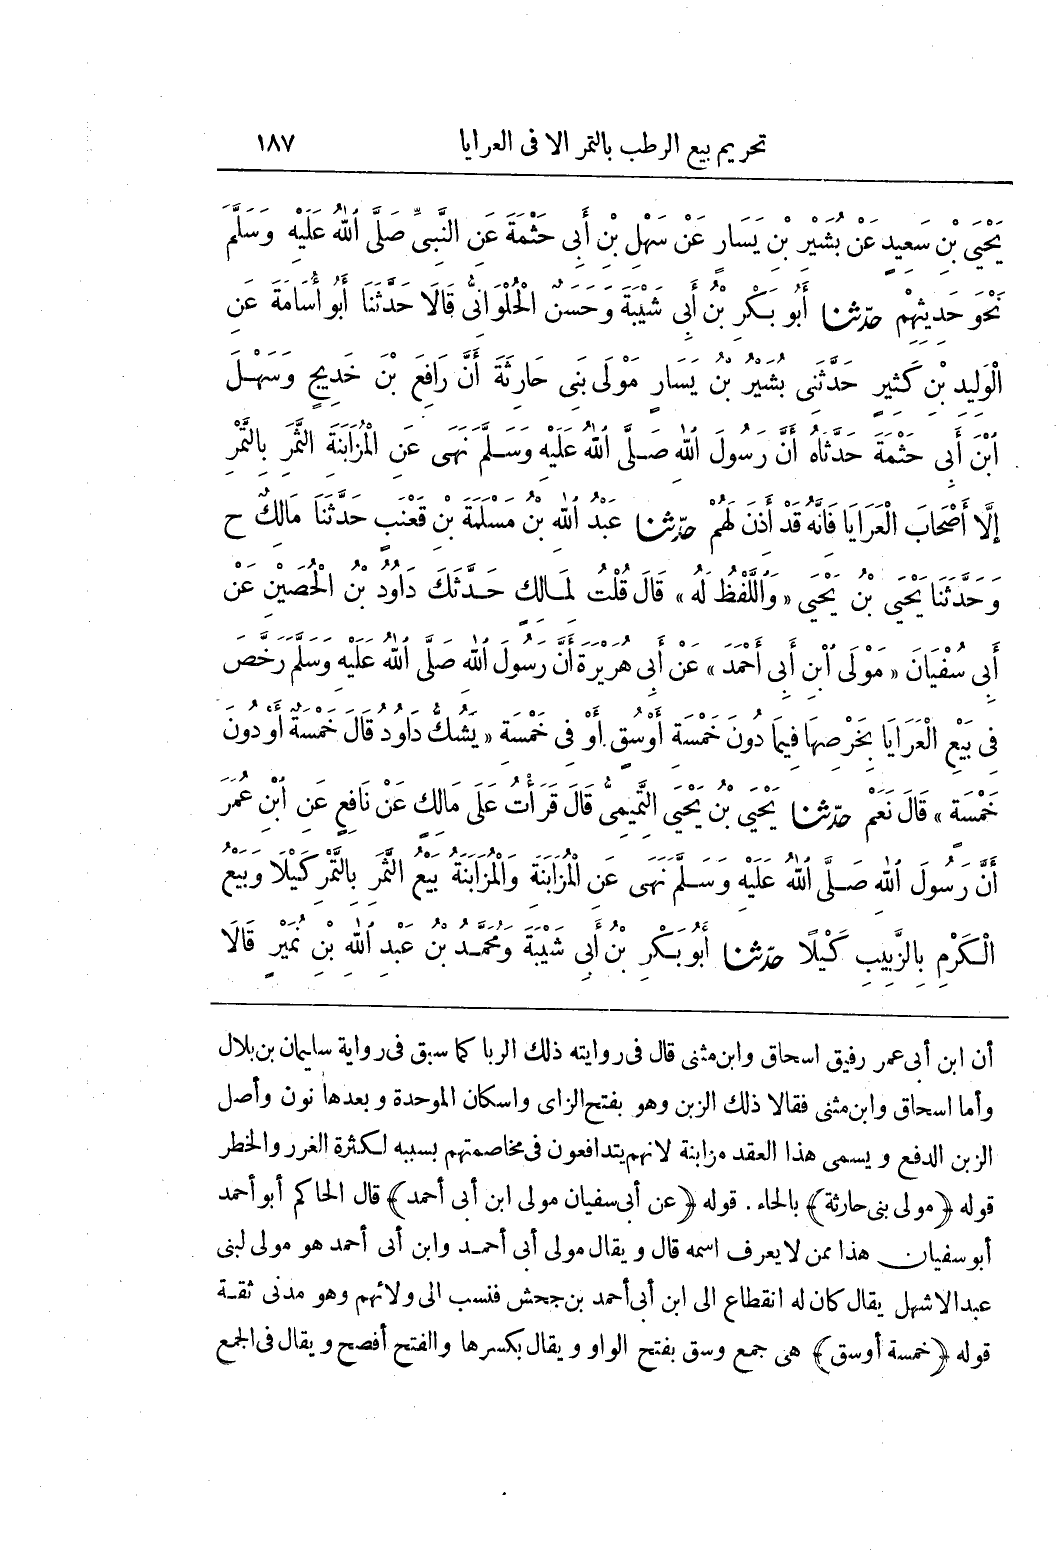 تحريم بيع الرطب بالتمر الا فى العرايا ١٨٧
يَحْيَى بْنِ سَعِيدٍ عَنْ بُشَيْرِ بْنِ يَسَارٍ عَنْ سَهْلِ بْنِ أَبِى حَثْمَةَ عَنِ النَّبِىِّ صَلَّى ٱللهُ عَلَيْهِ وَسَلَّمَ
نَحْوَ حَدِيثِهِمْ حدّثنا أَبُو بَكْرِ بْنُ أَبِى شَيْبَةَ وَحَسَنٌ الْحُلْوَانِىُّ قَالَا حَدَّثَنَا أَبُو أُسَامَةَ عَنِ
الْوَلِيدِ بْنِ كَثِيرٍ حَدَّثَنِى بُشَيْرُ بْنُ يَسَارٍ مَوْلَى بَنِى حَارِثَةَ أَنَّ رَافِعَ بْنَ خَدِيجٍ وَسَهْلَ
ٱبْنَ أَبِى حَثْمَةَ حَدَّثَاهُ أَنَّ رَسُولَ ٱللهِ صَلَّى ٱللهُ عَلَيْهِ وَسَلَّمَ نَهَى عَنِ الْمُزَابَنَةِ الثَّمَرِ بِالتَّمْرِ
إِلَّا أَصْحَابَ الْعَرَايَا فَانَّهُ قَدْ أَذِنَ لَهُمْ حدّثنا عَبْدُ ٱللهِ بْنُ مَسْلَمَةَ بْنِ قَعْنَبٍ حَدَّثَنَا مَالِكٌ ح
وَحَدَّثَنَا يَحْيَى بْنُ يَحْيَى «وَٱللَّفْظُ لَهُ» قَالَ قُلْتُ لِمَالِكٍ حَدَّثَكَ دَاوُدُ بْنُ الْحُصَيْنِ عَنْ
أَبِى سُفْيَانَ «مَوْلَى ٱبْنِ أَبِى أَحْمَدَ» عَنْ أَبِى هُرَيْرَةَ أَنَّ رَسُولَ ٱللهِ صَلَّى ٱللهُ عَلَيْهِ وَسَلَّمَ رَخَّصَ
فِى بَيْعِ الْعَرَايَا بِخَرْصِهَا فِيمَا دُونَ خَمْسَةِ أَوْسُقٍ أَوْ فِى خَمْسَةٍ «يَشُكُّ دَاوُدُ قَالَ خَمْسَةٌ أَوْ دُونَ
خَمْسَةٍ» قَالَ نَعَمْ حدّثنا يَحْيَى بْنُ يَحْيَى التَّمِيمِىُّ قَالَ قَرَأْتُ عَلَى مَالِكٍ عَنْ نَافِعٍ عَنِ ٱبْنِ عُمَرَ
أَنَّ رَسُولَ ٱللهِ صَلَّى ٱللهُ عَلَيْهِ وَسَلَّمَ نَهَى عَنِ الْمُزَابَنَةِ وَالْمُزَابَنَةُ بَيْعُ الثَّمَرِ بِالتَّمْرِ كَيْلًا وَبَيْعُ
الْكَرْمِ بِالزَّبِيبِ كَيْلًا حدّثنا أَبُو بَكْرِ بْنُ أَبِى شَيْبَةَ وَمُحَمَّدُ بْنُ عَبْدِ ٱللهِ بْنِ نُمَيْرٍ قَالَا
أن ابن أبى عمر رفيق اسحاق وابن مثنى قال فى روايته ذلك الربا كما سبق فى رواية سليمان بن بلال
وأما اسحاق وابن مثنى فقالا ذلك الزبن وهو بفتح الزاى واسكان الموحدة وبعدها نون وأصل
الزبن الدفع ويسمى هذا العقد مزابنة لانهم يتدافعون فى مخاصمتهم بسببه لكثرة الغرر والخطر
قوله ﴿مولى بنى حارثة﴾ بالحاء . قوله ﴿عن أبى سفيان مولى ابن أبى أحمد﴾ قال الحاكم أبو أحمد
أبو سفيان هذا ممن لا يعرف اسمه قال ويقال مولى أبى أحمد وابن أبى أحمد هو مولى لبنى
عبد الاشهل يقال كان له انقطاع الى ابن أبى أحمد بن جحش فنسب الى ولائهم وهو مدنى ثقة
قوله ﴿خمسة أوسق﴾ هى جمع وسق بفتح الواو ويقال بكسرها والفتح أفصح ويقال فى الجمع